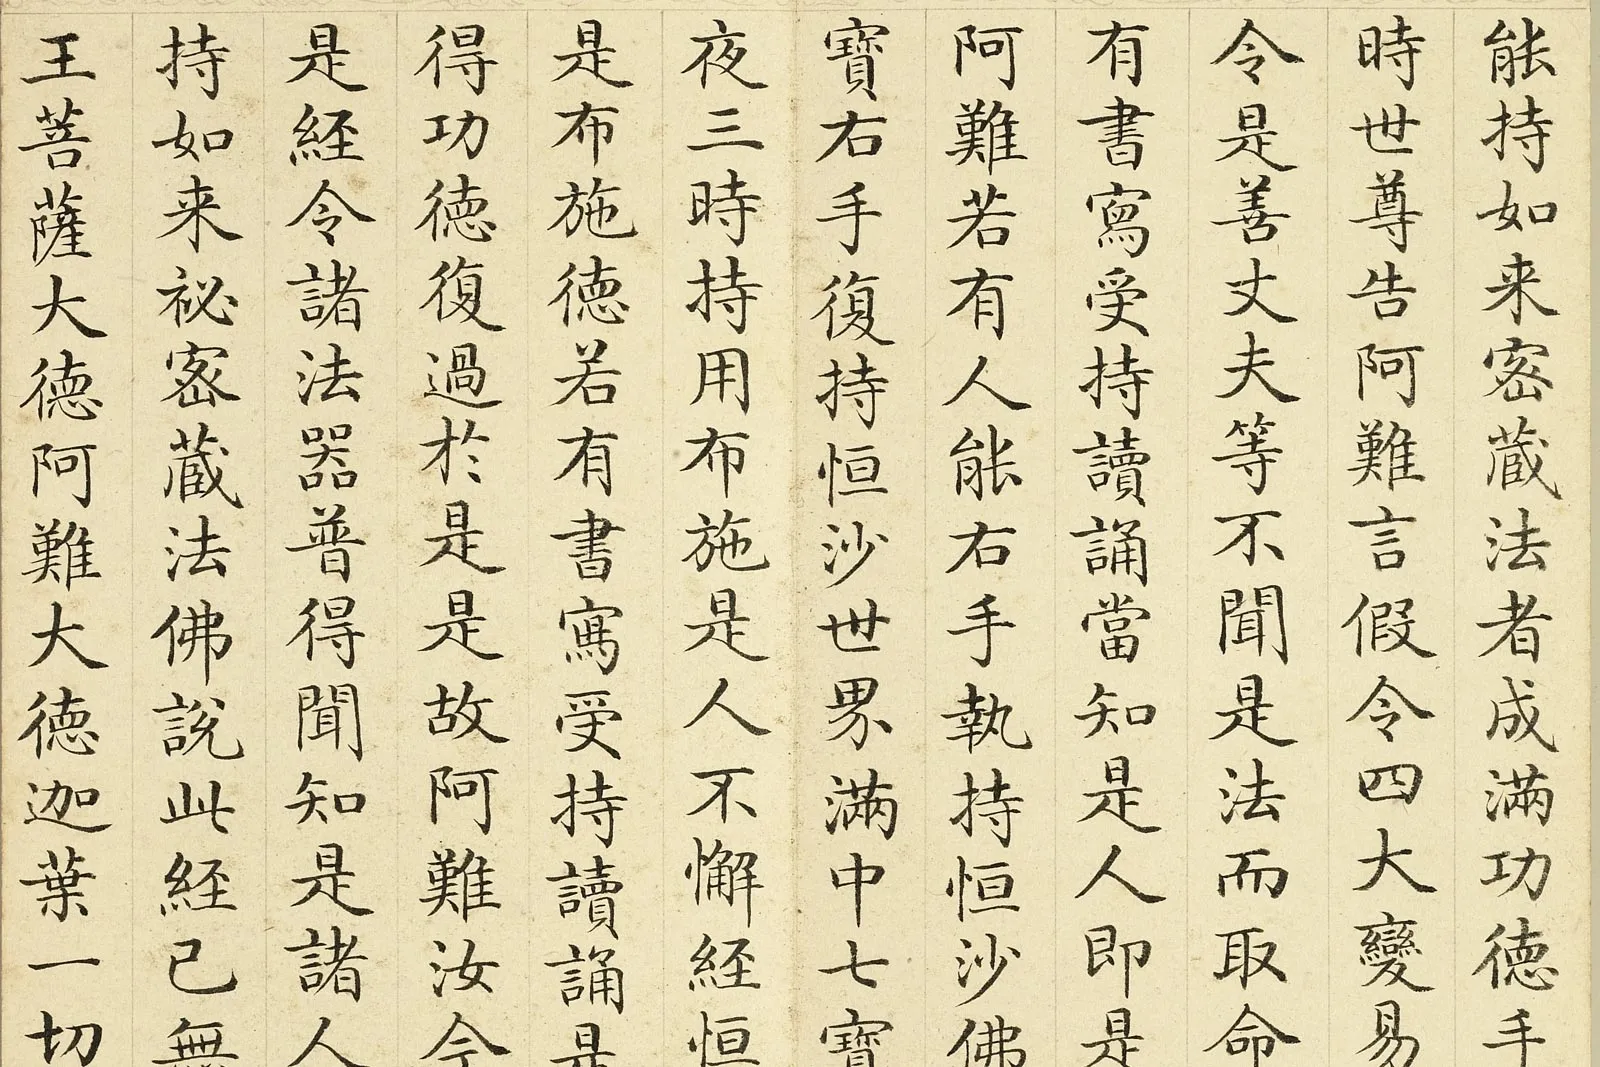 能持如来宻蔵法者成満功德手
時世尊告阿難言假令四大變易
令是善丈夫等不聞是法而取命
有書寫受持讀誦當知是人即是
阿難若有人能右手執持恒沙佛
寶右手復持恒沙世界滿中七寶
夜三時持用布施是人不懈経恒
是布施德若有書寫受持讀誦是
得功德復過於是是故阿難汝今
是経令諸法器普得聞知是諸人
持如来祕宻蔵法佛說此経已無
王菩薩大德阿難大德迦葉一切